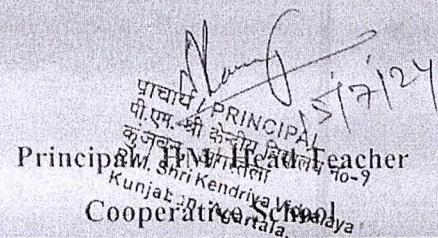 15/7/24
प्राचार्य / PRINCIPAL
पी.एम. श्री केन्द्रीय विद्यालय no-9
कुंजवन, अगरतला
P.M. Shri Kendriya Vidyalaya
Kunjaban, Agartala.
Principal/ Head Teacher
Cooperative School